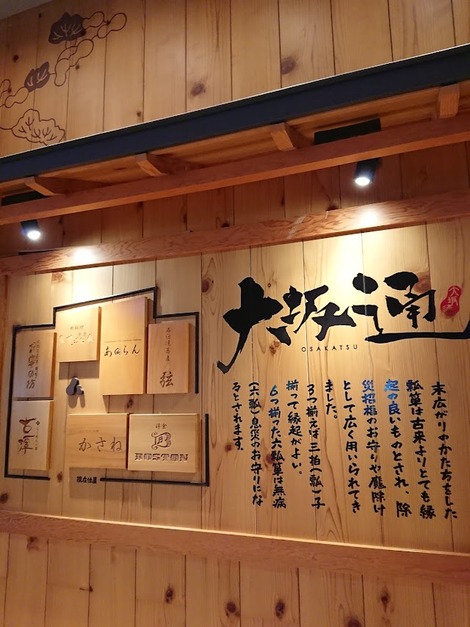 大坂通
OSAKATSU
末広がりのかたちをした
瓢箪は古来よりとても縁
起の良いものとされ、除
災招福のお守りや魔除け
として広く用いられてき
ました。
3つ揃えば三拍(瓢)子
揃って縁起がよい。
6つ揃った六瓢箪は無病
(六瓢)息災のお守りにな
るとされます。
あらん
弦
かさね